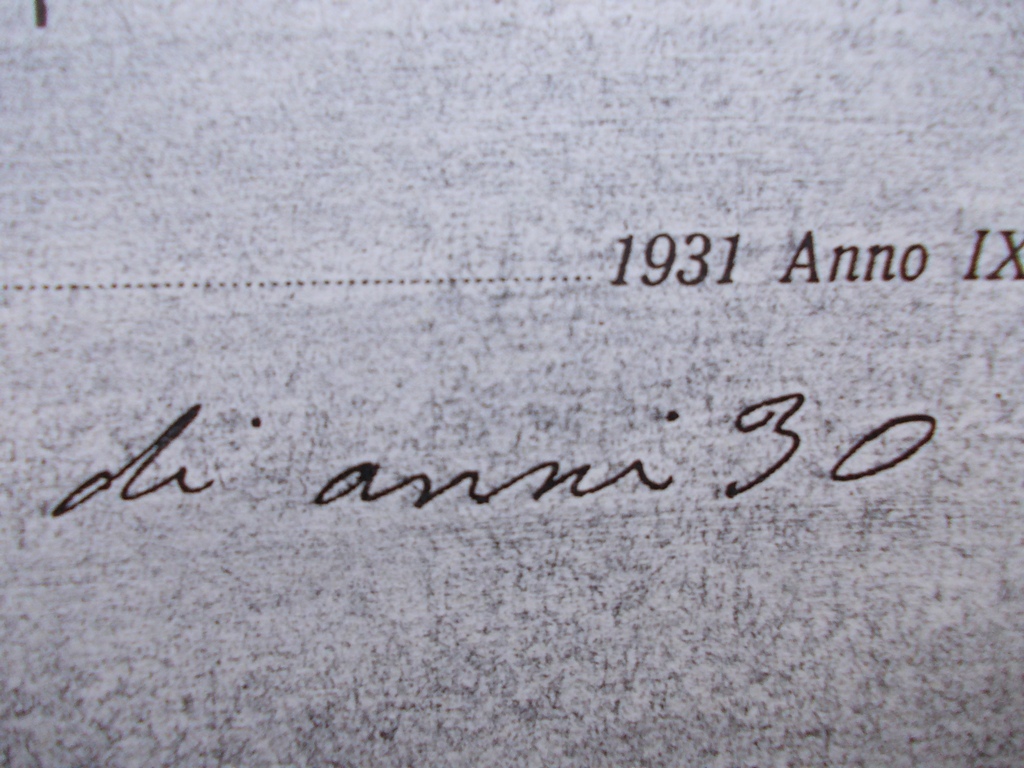 1931 Anno IX
di anni 30